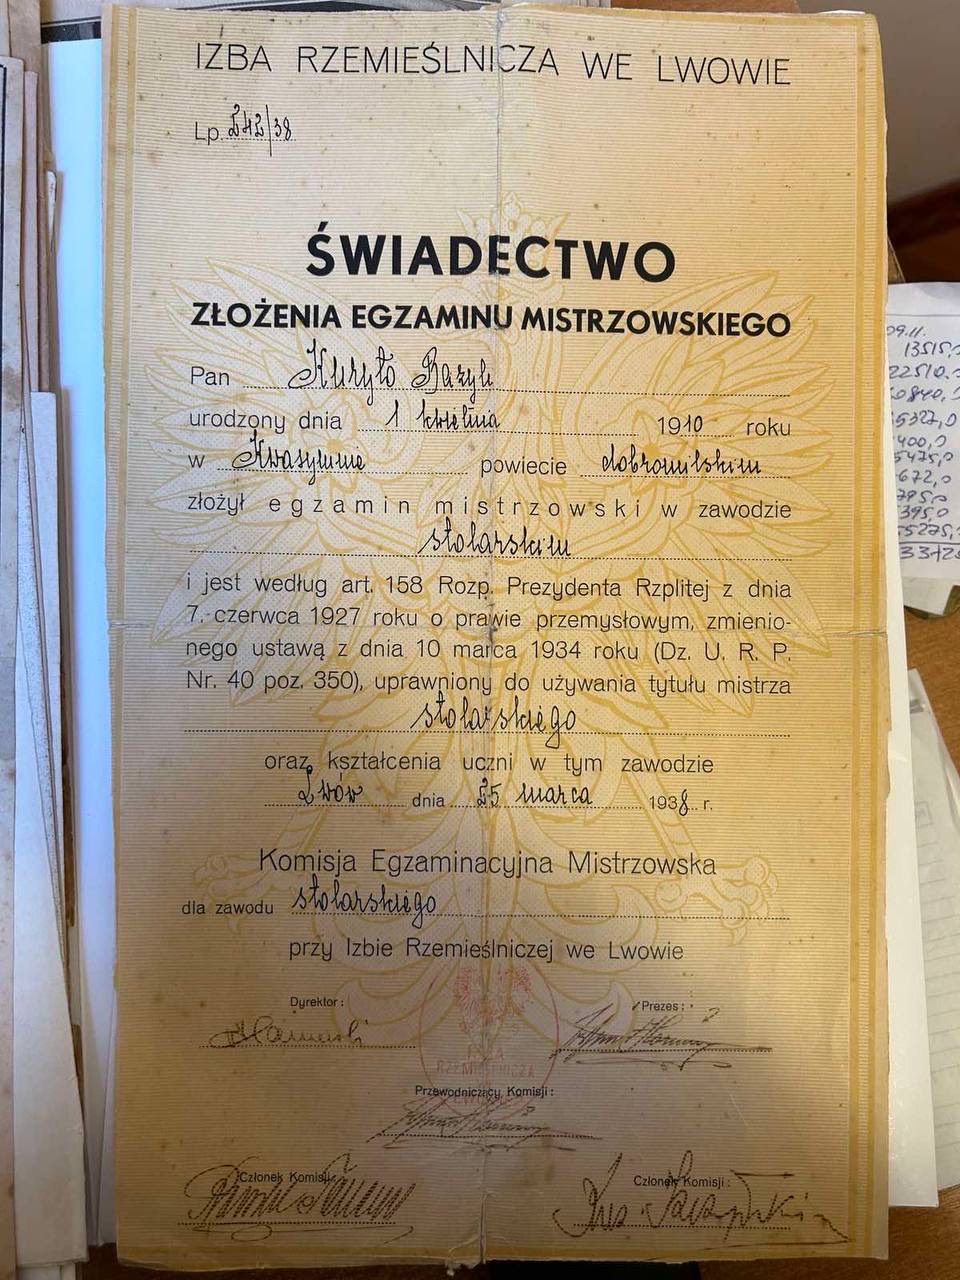 IZBA RZEMIEŚLNICZA WE LWOWIE
Lp. 242/38
ŚWIADECTWO
ZŁOŻENIA EGZAMINU MISTRZOWSKIEGO
Pan Kuryło Bazyli
urodzony dnia 1 kwietnia 1910 roku
w Kwasyninie powiecie dobromilskim
złożył egzamin mistrzowski w zawodzie
stolarskim
i jest według art. 158 Rozp. Prezydenta Rzplitej z dnia
7. czerwca 1927 roku o prawie przemysłowym, zmienio-
nego ustawą z dnia 10 marca 1934 roku (Dz. U. R. P.
Nr. 40 poz. 350), uprawniony do używania tytułu mistrza
stolarskiego
oraz kształcenia uczni w tym zawodzie
Lwów dnia 25 marca 1938 r.
Komisja Egzaminacyjna Mistrzowska
dla zawodu stolarskiego
przy Izbie Rzemieślniczej we Lwowie
Dyrektor:
Prezes:
IZBA
RZEMIEŚLNICZA
Przewodniczący Komisji:
Członek Komisji:
Członek Komisji:
09.11.
13515,0
22510,
400,0
672,0
795,0
395,0